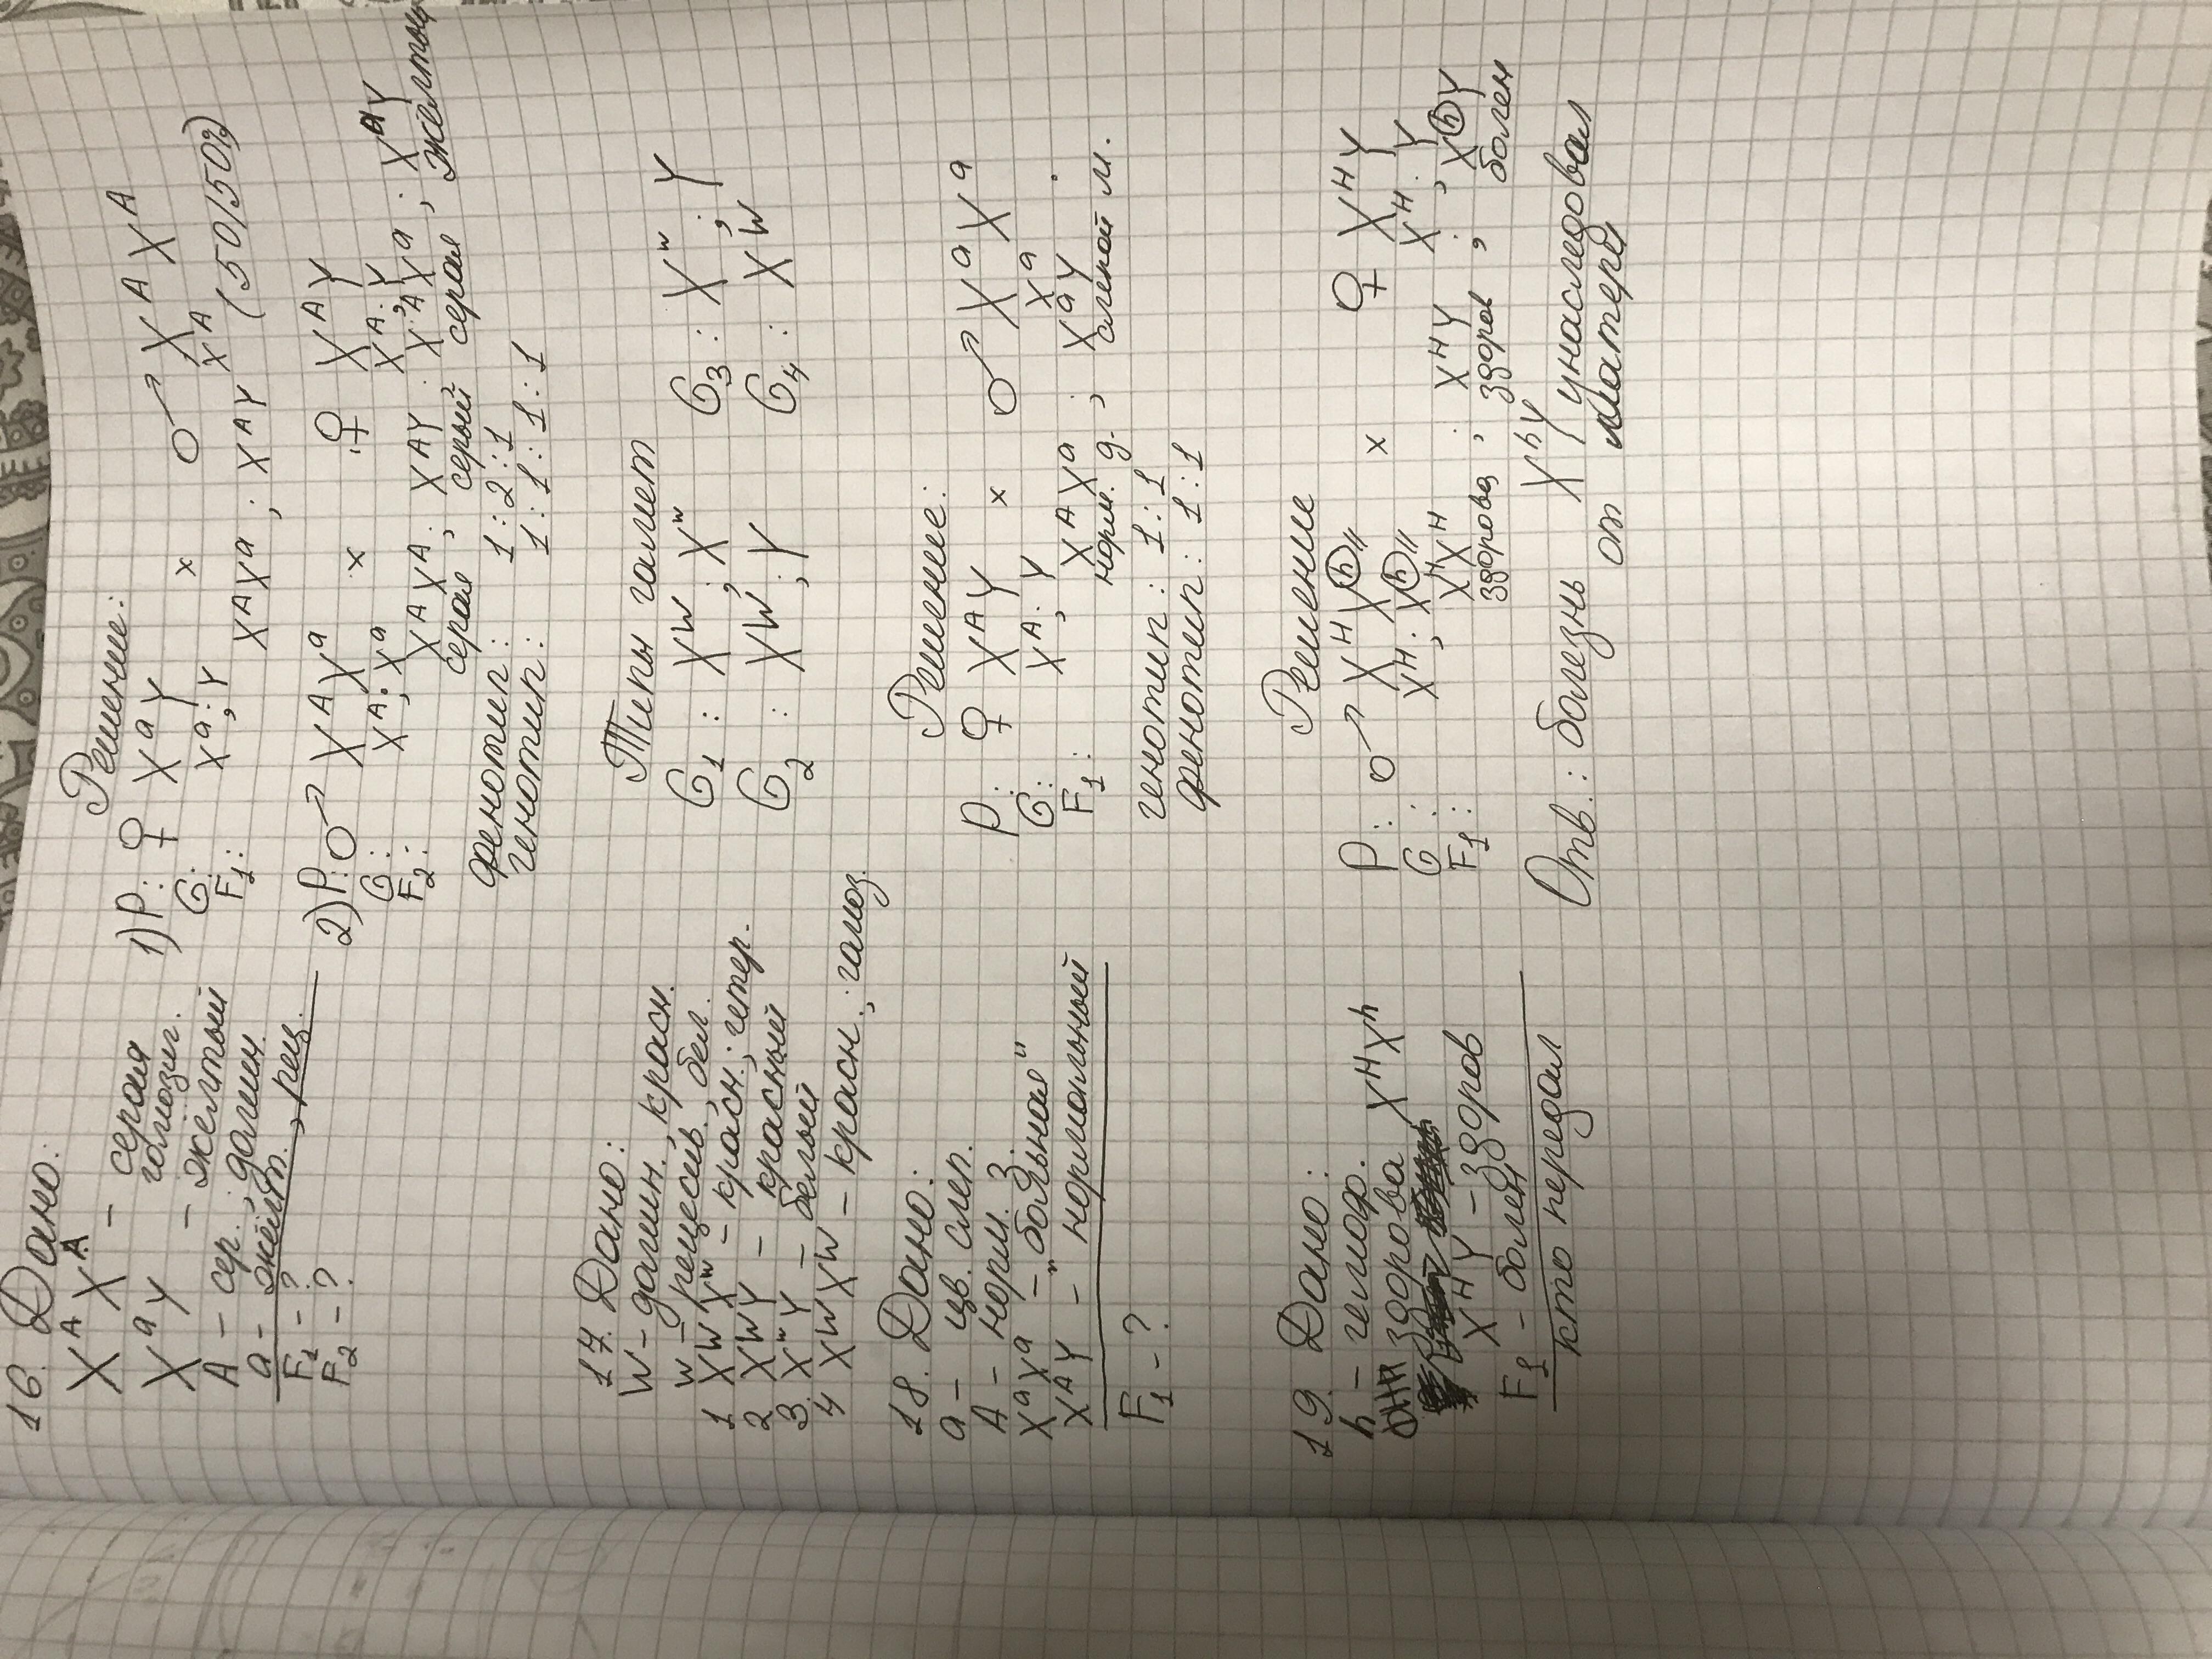 16. Дано:
X^A X^A – серая
гомозиг.
X^a Y – желтый
A – сер., домин.
a – желт., рец.
F1 – ?
F2 – ?
Решение:
1) P: ♀ X^a Y × ♂ X^A X^A
G: X^a; Y X^A
F1: X^A X^a; X^A Y (50/50%)
2) P: ♂ X^A X^a × ♀ X^A Y
G: X^A; X^a X^A; Y
F2: X^A X^A; X^A Y; X^A X^a; X^a Y
серая серый серая желтый
фенотип: 1:2:1
генотип: 1:1:1:1
17. Дано:
W – домин., красн.
w – рецесив., бел.
1 X^W X^w – красн.; гетер.
2 X^W Y – красный
3. X^w Y – белый
4 X^W X^W – красн.; гомоз.
Типы гамет
G1: X^W; X^w G3: X^w; Y
G2: X^W; Y G4: X^W
18. Дано:
a – цв. слеп.
A – норм. з.
X^a X^a – "больная"
X^A Y – нормальный
F1 – ?
Решение:
P: ♀ X^A Y × ♂ X^a X^a
G: X^A; Y X^a
F1: X^A X^a; X^a Y
норм. д. слепой м.
генотип: 1:1
фенотип: 1:1
19. Дано:
h – гемоф.
она здорова X^H X^h
X^H Y – здоров
F1 – болен
кто передал
Решение
P: ♂ X^H X^h × ♀ X^H Y
G: X^H; X^h X^H; Y
F1: X^H X^H; X^H Y; X^h Y
здорова; здоров; болен
Отв.: болезнь X^h Y унаследовал
от матери